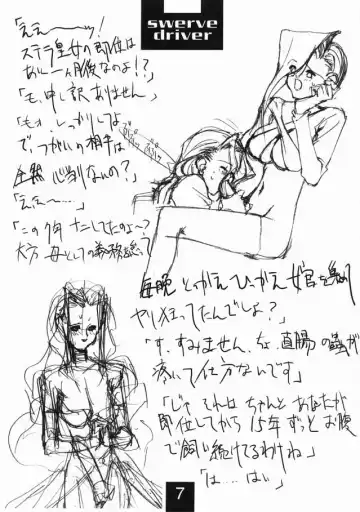 swerve
driver
「ええーーッ!
ステラ皇女の即位は
あと一ヶ月後なのよ!?」
「も、申し訳ありません」
「もォ、しっかりしてよ
で、つがいの相手は
全然 心当りないの?」
「ええ~…」
「この
大方 母としての義務を
毎晩 とっかえひっかえ女官を
ヤり狂ってたんでしょ?」
「す、すみません、ち、直腸の蟲が
疼いて仕方ないんです」
「じゃ それは ちゃんと あなたが
即位してから 15年ずっと お腹
で飼い続けてるわけね」
「は……はい」
7